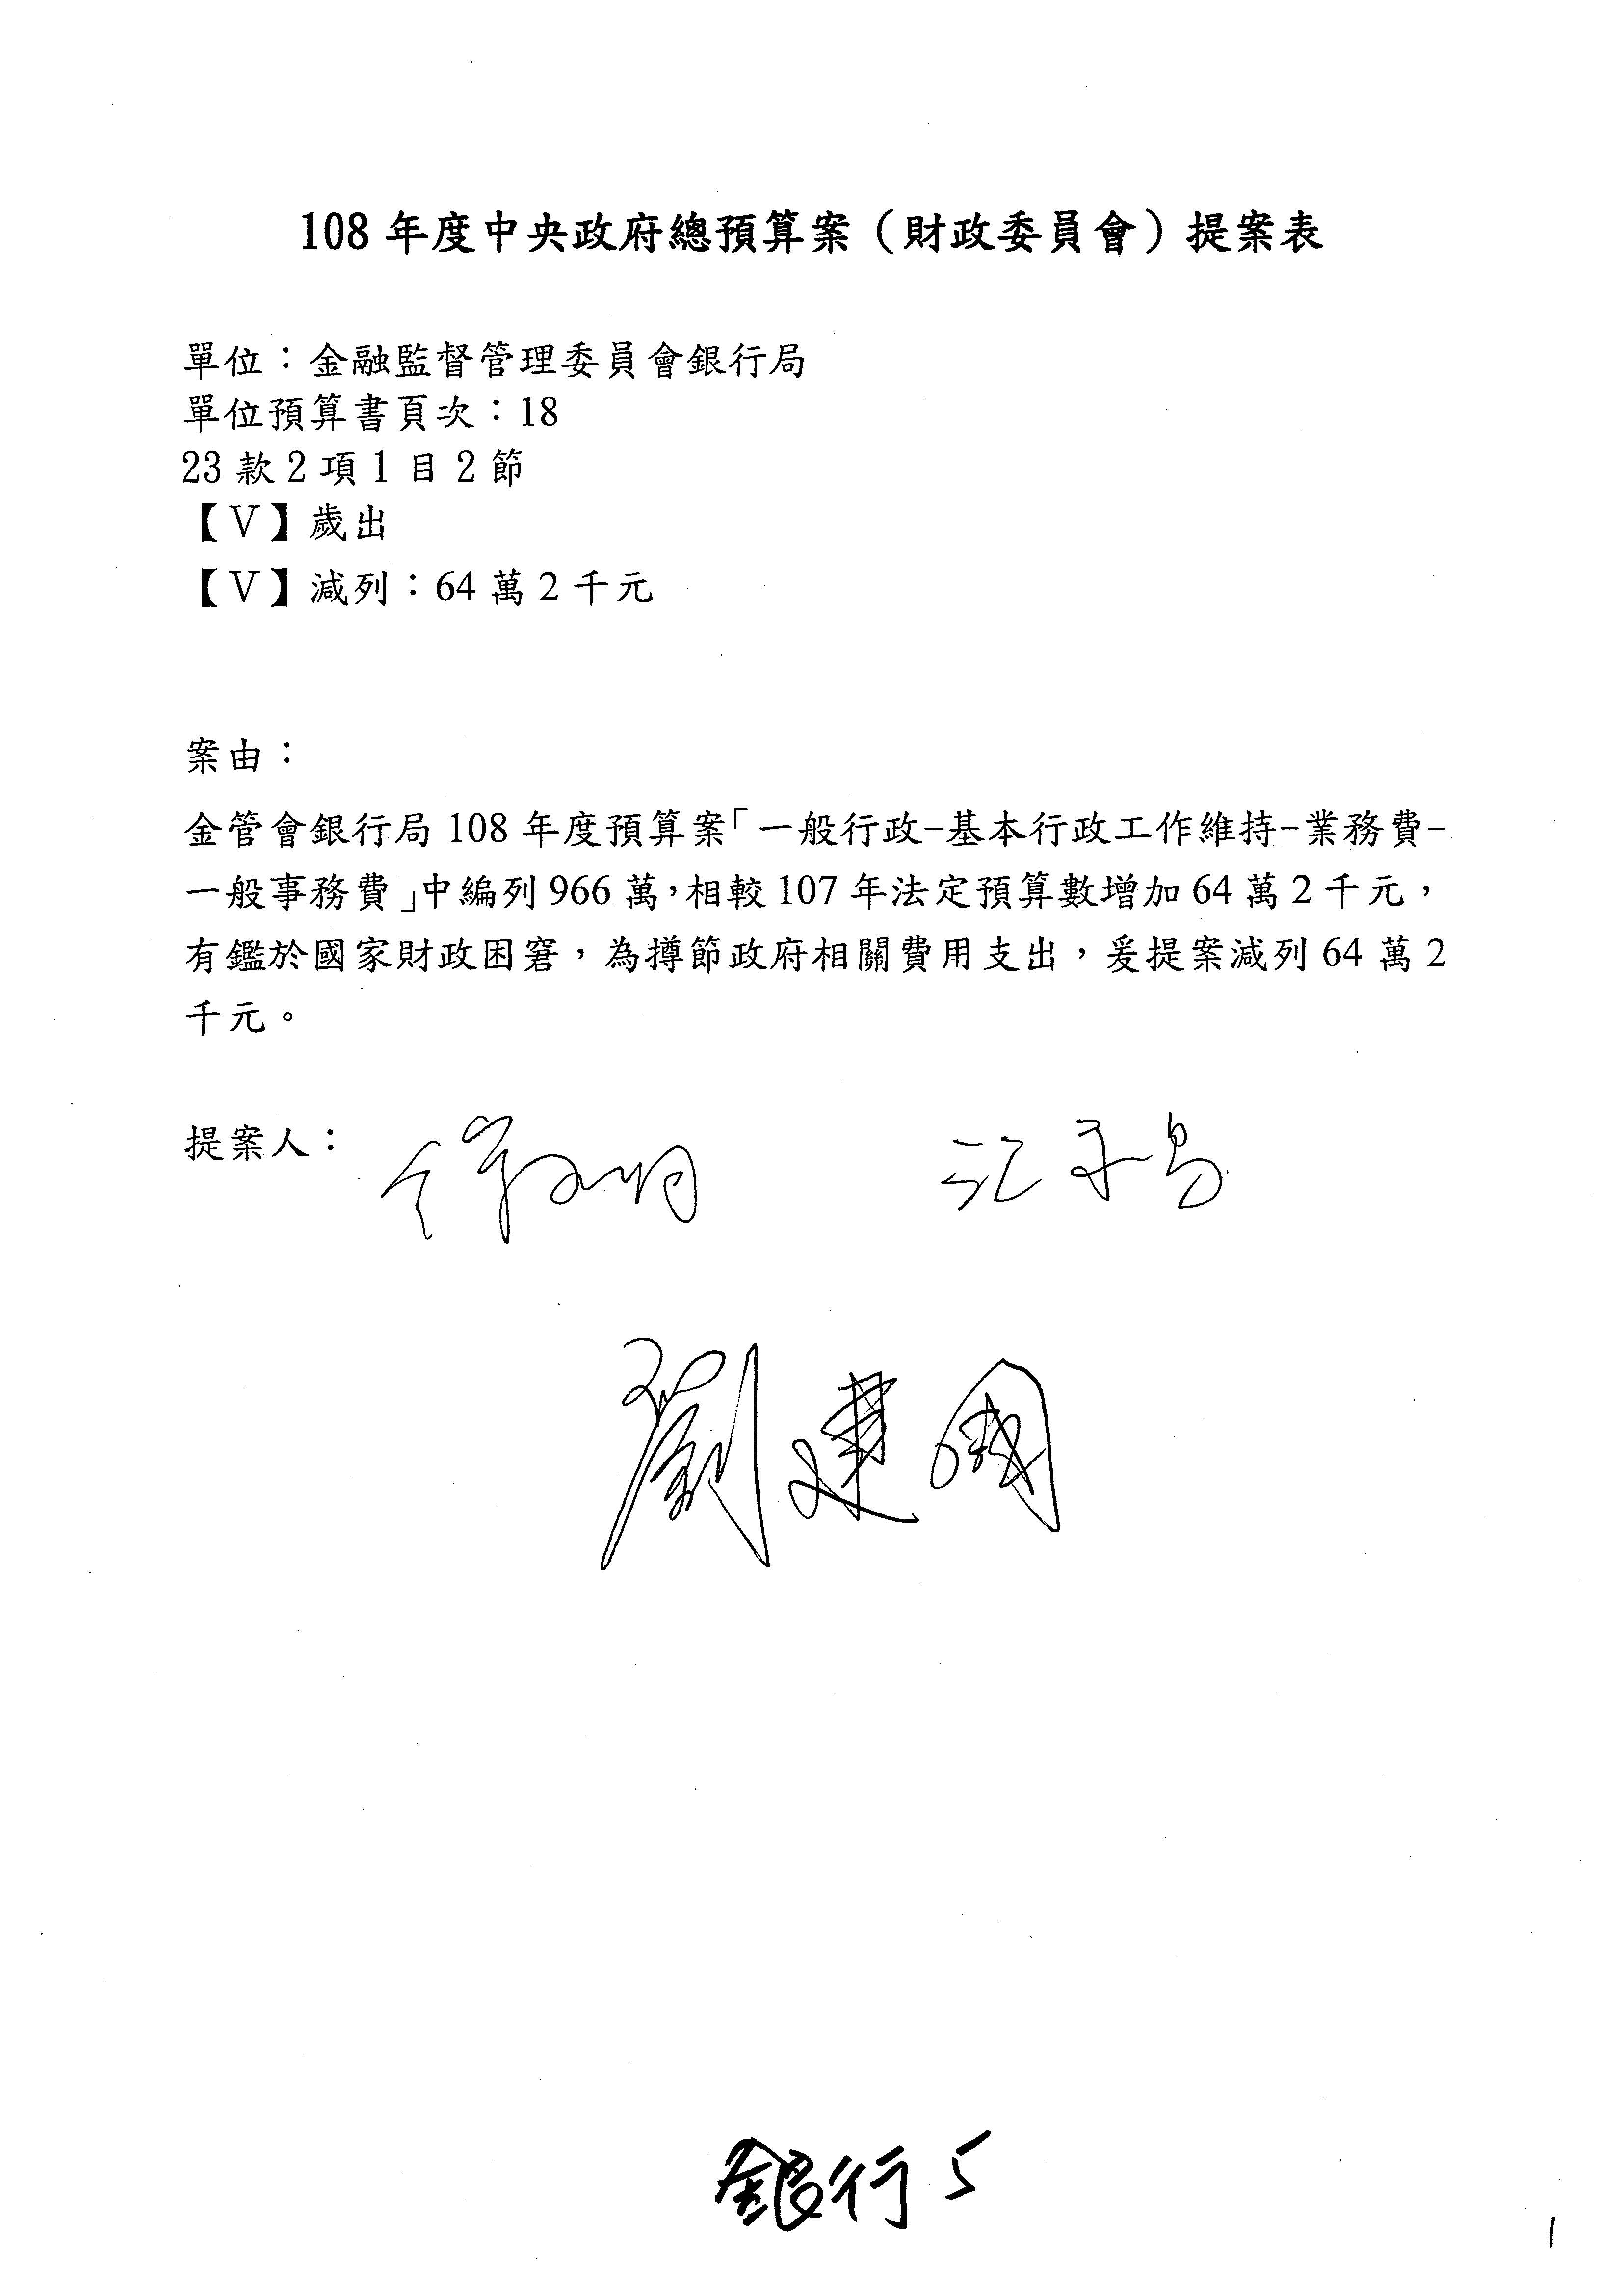 108 年度中央政府總預算案（財政委員會）提案表
單位：金融監督管理委員會銀行局
單位預算書頁次：18
23 款 2 項 1 目 2 節
【V】歲出
【V】減列：64 萬 2 千元
案由：
金管會銀行局 108 年度預算案「一般行政-基本行政工作維持-業務費-
一般事務費」中編列 966 萬，相較 107 年法定預算數增加 64 萬 2 千元，
有鑑於國家財政困窘，為撙節政府相關費用支出，爰提案減列 64 萬 2
千元。
提案人：
劉建國
銀行 5
1